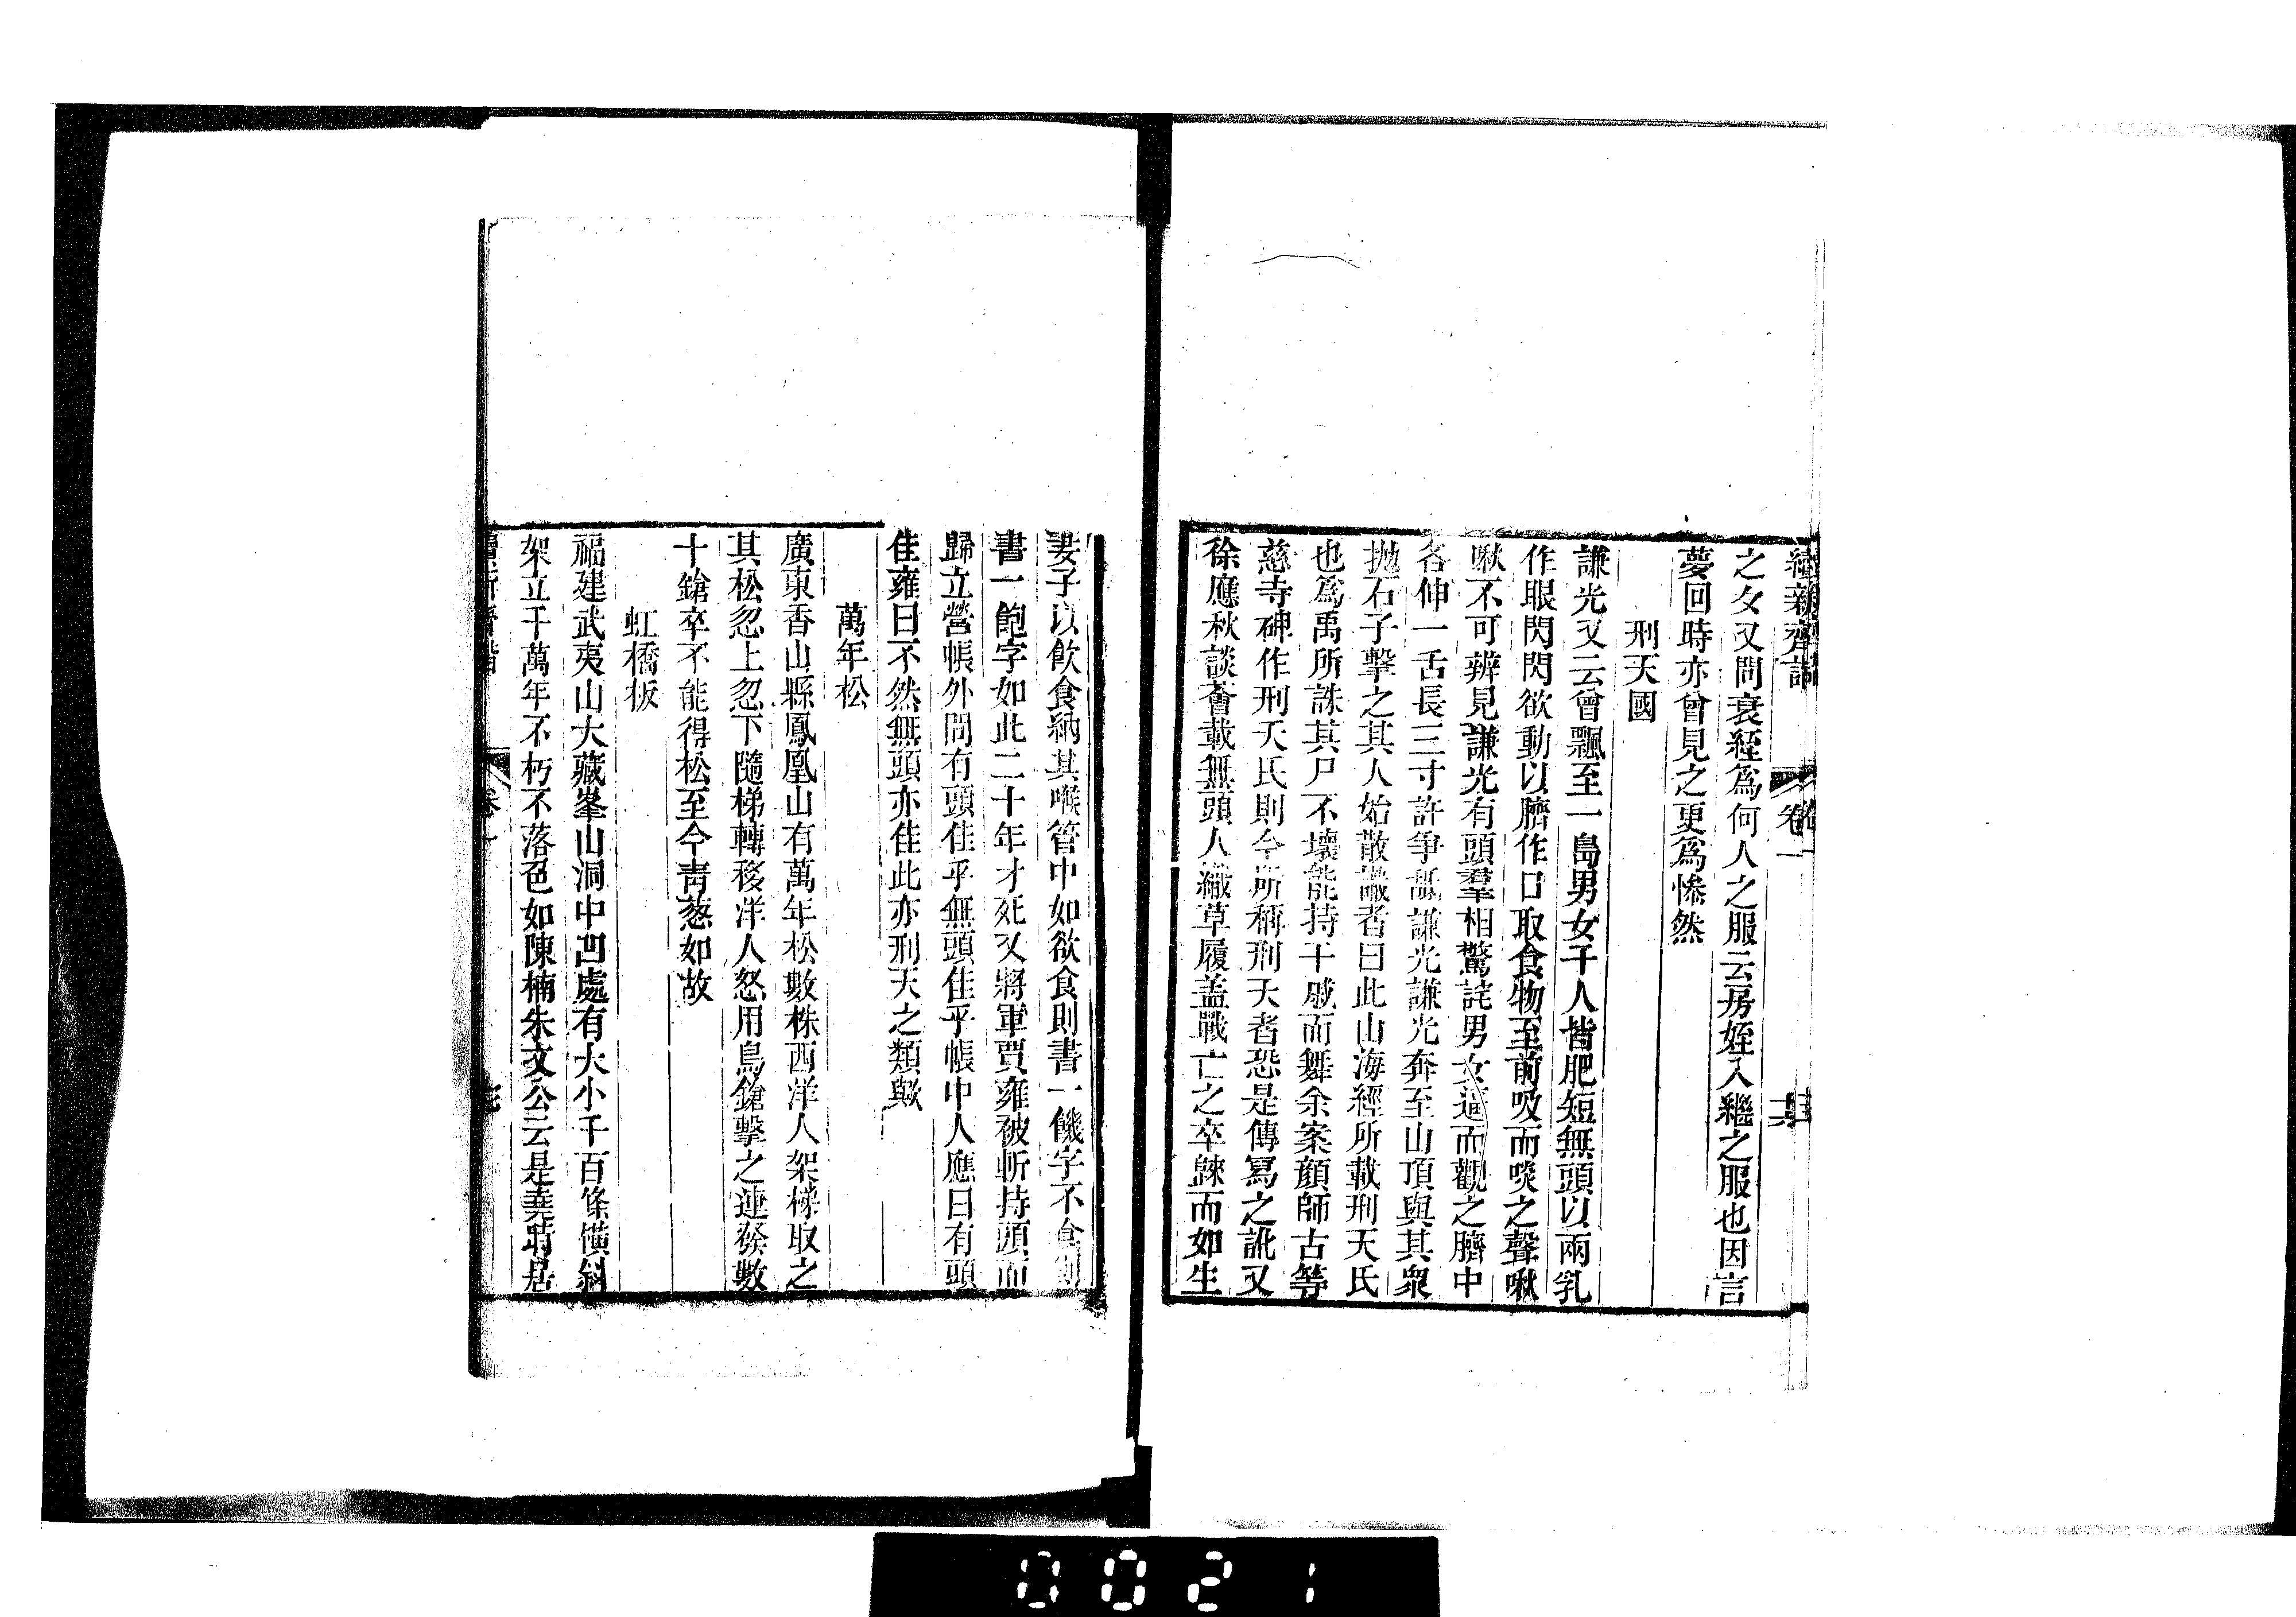 續新齊諧
卷一
之父又問衰絰爲何人之服云房姪入繼之服也因言
夢回時亦曾見之更爲慘然
刑天國
謙光又云曾飄至一島男女千人皆肥短無頭以兩乳
作眼閃閃欲動以臍作口取食物至前吸而啖之聲啾
啾不可辨見謙光有頭羣相驚詫男女逼而觀之臍中
各伸一舌長三寸許爭舐謙光謙光奔至山頂與其衆
拋石子擊之其人始散識者曰此山海經所載刑天氏
也爲禹所誅其尸不壞能持干戚而舞余案顔師古等
慈寺碑作刑夭氏則今所稱刑天者恐是傳寫之訛又
徐應秋談薈載無頭人織草履盖戰亡之卒歸而如生
妻子以飲食納其喉管中如欲食則書一饑字不食則
書一飽字如此二十年才死又將軍賈雍被斬持頭而
歸立營帳外問有頭佳乎無頭佳乎帳中人應曰有頭
佳雍曰不然無頭亦佳此亦刑天之類歟
萬年松
廣東香山縣鳳凰山有萬年松數株西洋人架梯取之
其松忽上忽下隨梯轉移洋人怒用鳥鎗擊之連發數
十鎗卒不能得松至今青葱如故
虹橋板
福建武夷山大藏峯山洞中凹處有大小千百條橫斜
架立千萬年不朽不落色如陳楠朱文公云是堯時居
續新齊諧
卷一
0021